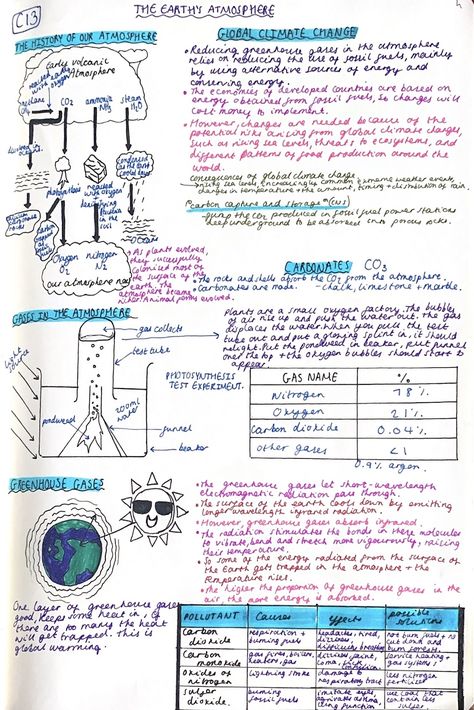 C13
THE EARTH'S ATMOSPHERE
THE HISTORY OF OUR ATMOSPHERE
Early volcanic
Atmosphere
CO2
ammonia
NH3
steam
H2O
photosynthesis
reacted
with oxygen
denitrifying
bacteria
in the
soil
Oceans
Oxygen nitrogen
O2 N2
our atmosphere now
• As plants evolved,
they successfully
colonised most of
the surface of
the earth.
the
atmosphere became
GLOBAL CLIMATE CHANGE
• Reducing greenhouse gases in the atmosphere
relies on reducing the use of fossil fuels, mainly
by using alternative sources of energy and
conserving energy.
• The economies of developed countries are based on
energy obtained from fossil fuels, so changes will
cost money to implement.
• However, changes are needed because of the
potential risks arising from global climate changes,
such as rising sea levels, threats to ecosystems, and
different patterns of food production around the
world.
consequences of global climate change
→ rising sea levels, increasingly common extreme weather events,
changes in temperature + the amount, timing + distribution of rain.
carbon capture and storage
- pump the CO2 produced in fossil fuel power stations
deep underground to be absorbed into porous rocks.
CARBONATES CO3
• The rocks and shells absorb the CO2 from the atmosphere.
• Carbonates are made. - chalk, limestone + marble.
GASES IN THE ATMOSPHERE
gas collects
test tube
light
source
PHOTOSYNTHESIS
TEST EXPERIMENT.
200ml
water
pondweed
funnel
beaker
Plants are a small oxygen factory. The bubbles
of air rise up and push the water out. The gas
displaces the water. When you pull the test
tube out and put a glowing splint in, it should
relight. Put the pondweed in beaker, put funnel
over the top + the oxygen bubbles should start to
appear.
GAS NAME %
Nitrogen 78%.
Oxygen 21%.
Carbon dioxide 0.04%.
other gases <1
0.9% argon.
GREENHOUSE GASES
• The greenhouse gases let short-wavelength
electromagnetic radiation pass through.
• The surface of the earth cools down by emitting
longer wavelength infrared radiation.
• However greenhouse gases absorb infrared.
• The radiation stimulates the bonds in these molecules
to vibrate, bend and stretch more vigorously, raising
their temperature.
• So some of the energy radiated from the surface of
the Earth gets trapped in the atmosphere + the
temperature rises.
• The higher the proportion of greenhouse gases in the
air the more energy is absorbed.
One layer of greenhouse gases
good, keeps some heat in, if
there are too many the heart
will get trapped. This is
global warming.
POLLUTANT Causes Effects possible solutions
Carbon dioxide respiration + burning fossil fuels
Carbon monoxide gas fires, boilers, heaters, gas
oxides of nitrogen lightning strike damage to respiratory tract less nitrogen
sulfur dioxide. burning fossil fuels use coal that contains less sulfur.